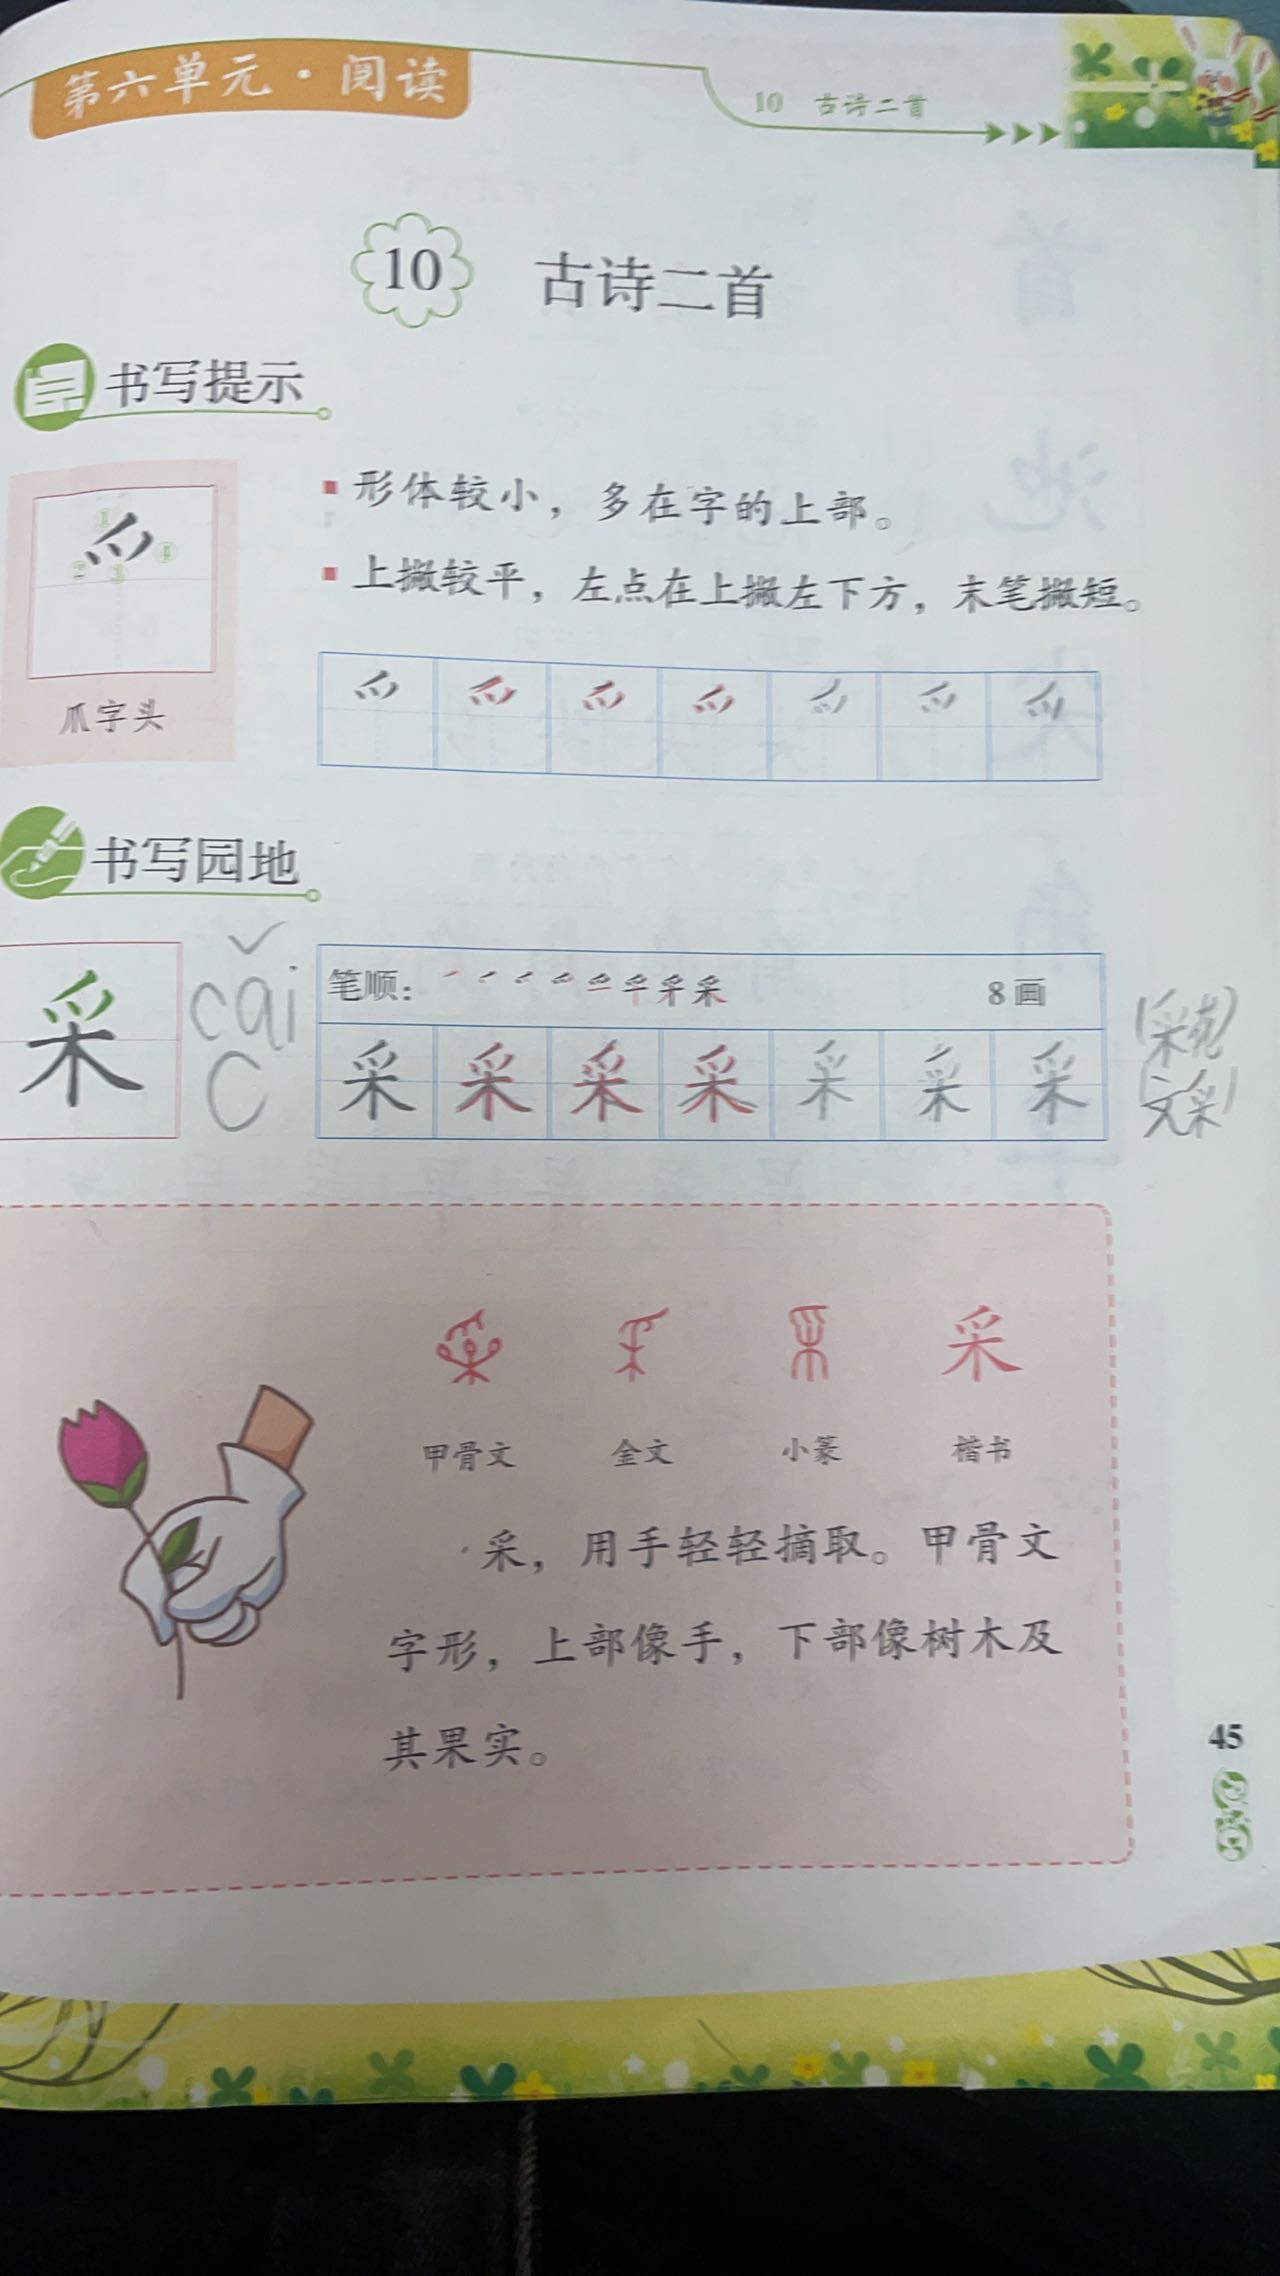 第六单元·阅读
10 古诗二首
10 古诗二首
书写提示
形体较小，多在字的上部。
上撇较平，左点在上撇左下方，末笔撇短。
① ② ③ ④
爫 爫 爫 爫 爫 爫 爫 爫
爪字头
书写园地
采 cǎi
C
笔顺： 8画
采 采 采 采 采 采 采
(采
文采)
采
甲骨文 金文 小篆 楷书
采，用手轻轻摘取。甲骨文
字形，上部像手，下部像树木及
其果实。
45